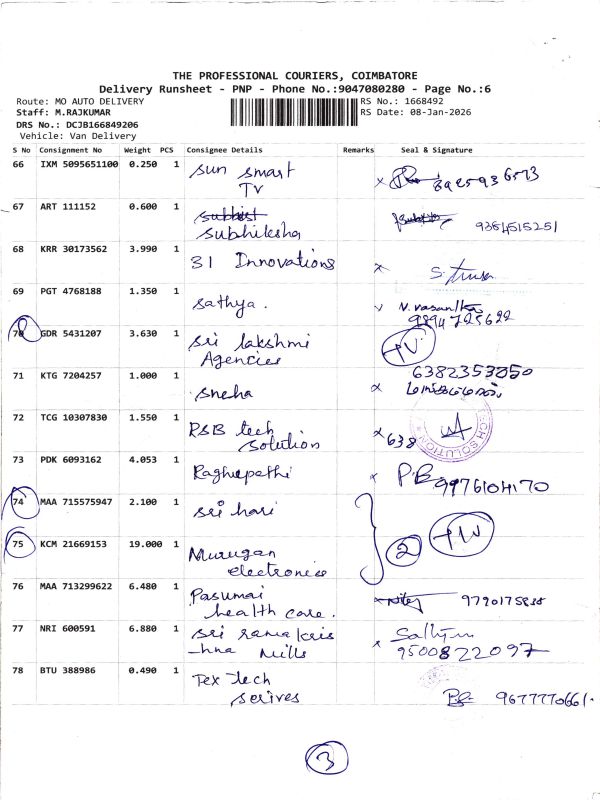 THE PROFESSIONAL COURIERS, COIMBATORE
Delivery Runsheet - PNP - Phone No.:9047080280 - Page No.:6
Route: MO AUTO DELIVERY RS No.: 1668492
Staff: M.RAJKUMAR RS Date: 08-Jan-2026
DRS No.: DCJB166849206
Vehicle: Van Delivery
S No Consignment No Weight PCS Consignee Details Remarks Seal & Signature
66 IXM 5095651100 0.250 1 Sun smart
TV
67 ART 111152 0.600 1
Subhiksha 9384515251
68 KRR 30173562 3.990 1 31 Innovations
69 PGT 4768188 1.350 1 Sathya. N. Vasantha
9894725622
70 GDR 5431207 3.630 1 Sri lakshmi
Agencies
71 KTG 7204257 1.000 1 Sneha 6382353250
72 TCG 10307830 1.550 1 RSB tech
Solution 638
73 PDK 6093162 4.053 1 Raghupathi P.B
9976104170
74 MAA 715575947 2.100 1 Sri hari
75 KCM 21669153 19.000 1 Murugan 2
electronics
76 MAA 713299622 6.480 1 Pasumai
health care. 9790175838
77 NRI 600591 6.880 1 Sri rama kris
hna Mills 9500822097
78 BTU 388986 0.490 1 Tex tech
Serives 9677770661
3